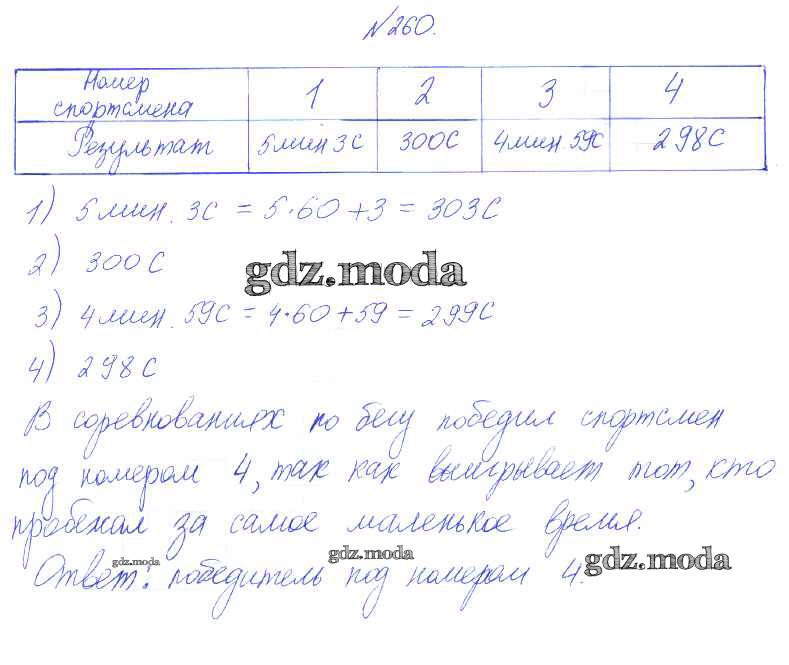 №260.
Номер спортсмена 1 2 3 4
Результат 5мин 3с 300с 4мин 59с 298с
1) 5 мин. 3с = 5·60+3 = 303с
2) 300с
gdz.moda
3) 4мин. 59с = 4·60+59 = 299с
4) 298с
В соревнованиях по бегу победил спортсмен
под номером 4, так как выигрывает тот, кто
пробежал за самое маленькое время.
gdz.moda gdz.moda gdz.moda
Ответ: победитель под номером 4.